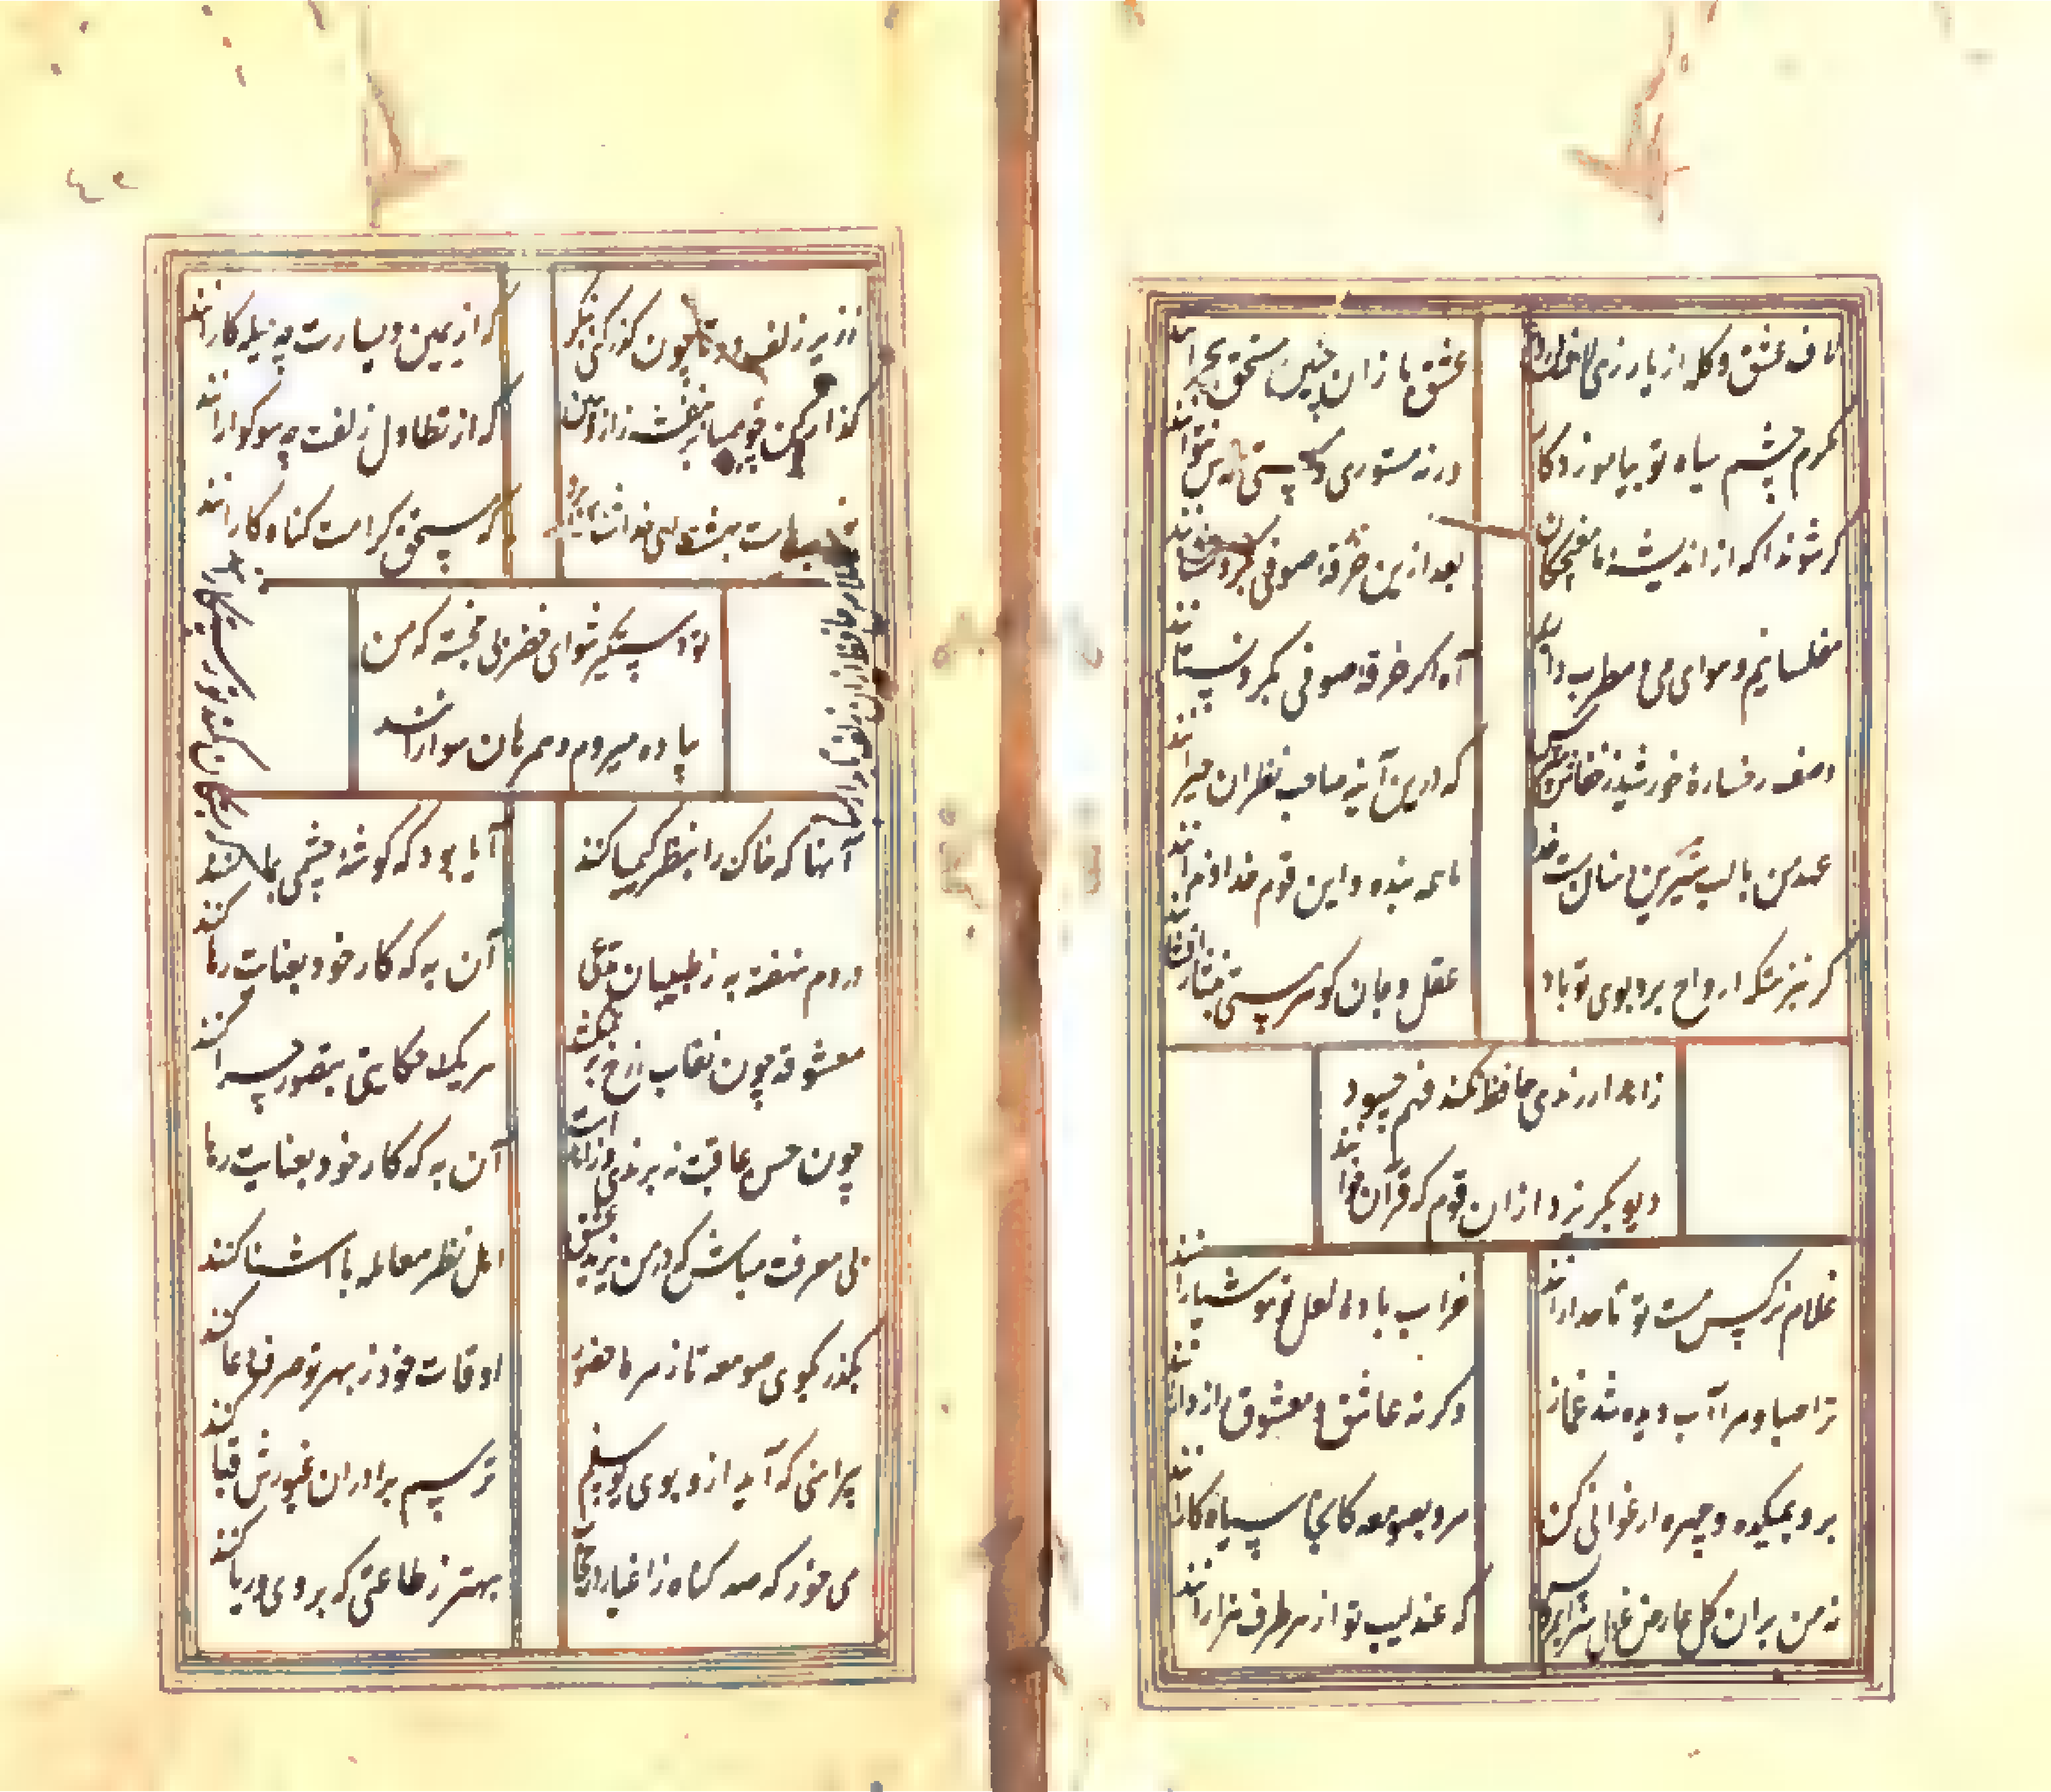 لاف عشق و کله از یار زهی لاف دروغ
عشق بازان چنین مستحق هجرانند
مکرم چشم سیاه تو بیاموزد کار
ورنه مستوری و مستی همه کس نتوانند
کر شوند اکه از اندیشه ما مغبچکان
بعد ازین خرقه صوفی بکرو نستانند
مفلسانیم و هوای می و مطرب داریم
آه اکر خرقه صوفی بکرو نستانند
وصف رخساره خورشید ز خفاش مپرس
که درین آینه صاحب نظران حیرانند
عهد من با لب شیرین دهنان بست خدا
ما همه بنده و این قوم خداوندانند
کر بنزهتکه ارواح برد بوی تو باد
عقل و جان کوهر هستی بنثار افشانند
زاهد ار رندی حافظ نکند فهم چسود
دیو بکریزد از ان قوم که قرآن خوانند
غلام نرکس مست تو تاجدارانند
خراب باده لعل تو هوشیارانند
ترا صبا و مرا آب دیده شد غماز
وکرنه عاشق و معشوق رازدارانند
برو بمیکده و چهره ارغوانی کن
مرو بصومعه کانجا سیاه کارانند
نه من بران کل عارض غزل سرایم و بس
که عندلیب تو از هر طرف هزارانند
ز زیر زلف دوتا چون کذر کنی بنکر
که از یمین و یسارت چه بیقرارانند
کذار کن چو صبا بر بنفشه زار و ببین
که از تطاول زلفت چه سوکوارانند
نصیب ماست بهشت ای خداشناس برو
که مستحق کرامت کناه کارانند
تو دستکیر شو ای خضر پی خجسته که من
پیاده میروم و همرهان سوارانند
خلاص حافظ از ان زلف تابدار مباد
که بستکان کمند تو رستکارانند
آنها که خاک را بنظر کیمیا کنند
آیا بود که کوشه چشمی بما کنند
دردم نهفته به ز طبیبان مدعی
آن به که کار خود بعنایت رها کنند
معشوقه چون نقاب ز رخ بر نمیکشد
هر یک حکایتی بتصور چرا کنند
چون حسن عاقبت نه برندی و زاهدیست
آن به که کار خود بعنایت رها کنند
بی معرفت مباش که در من یزید عشق
اهل نظر معامله با آشنا کنند
بکذر بکوی صومعه تا زمره حضور
اوقات خود ز بهر تو صرف دعا کنند
پیراهنی که آید ازو بوی یوسفم
ترسم برادران غیورش قبا کنند
می خور که صد کناه ز اغیار در حجاب
بهتر ز طاعتی که بروی و ریا کنند